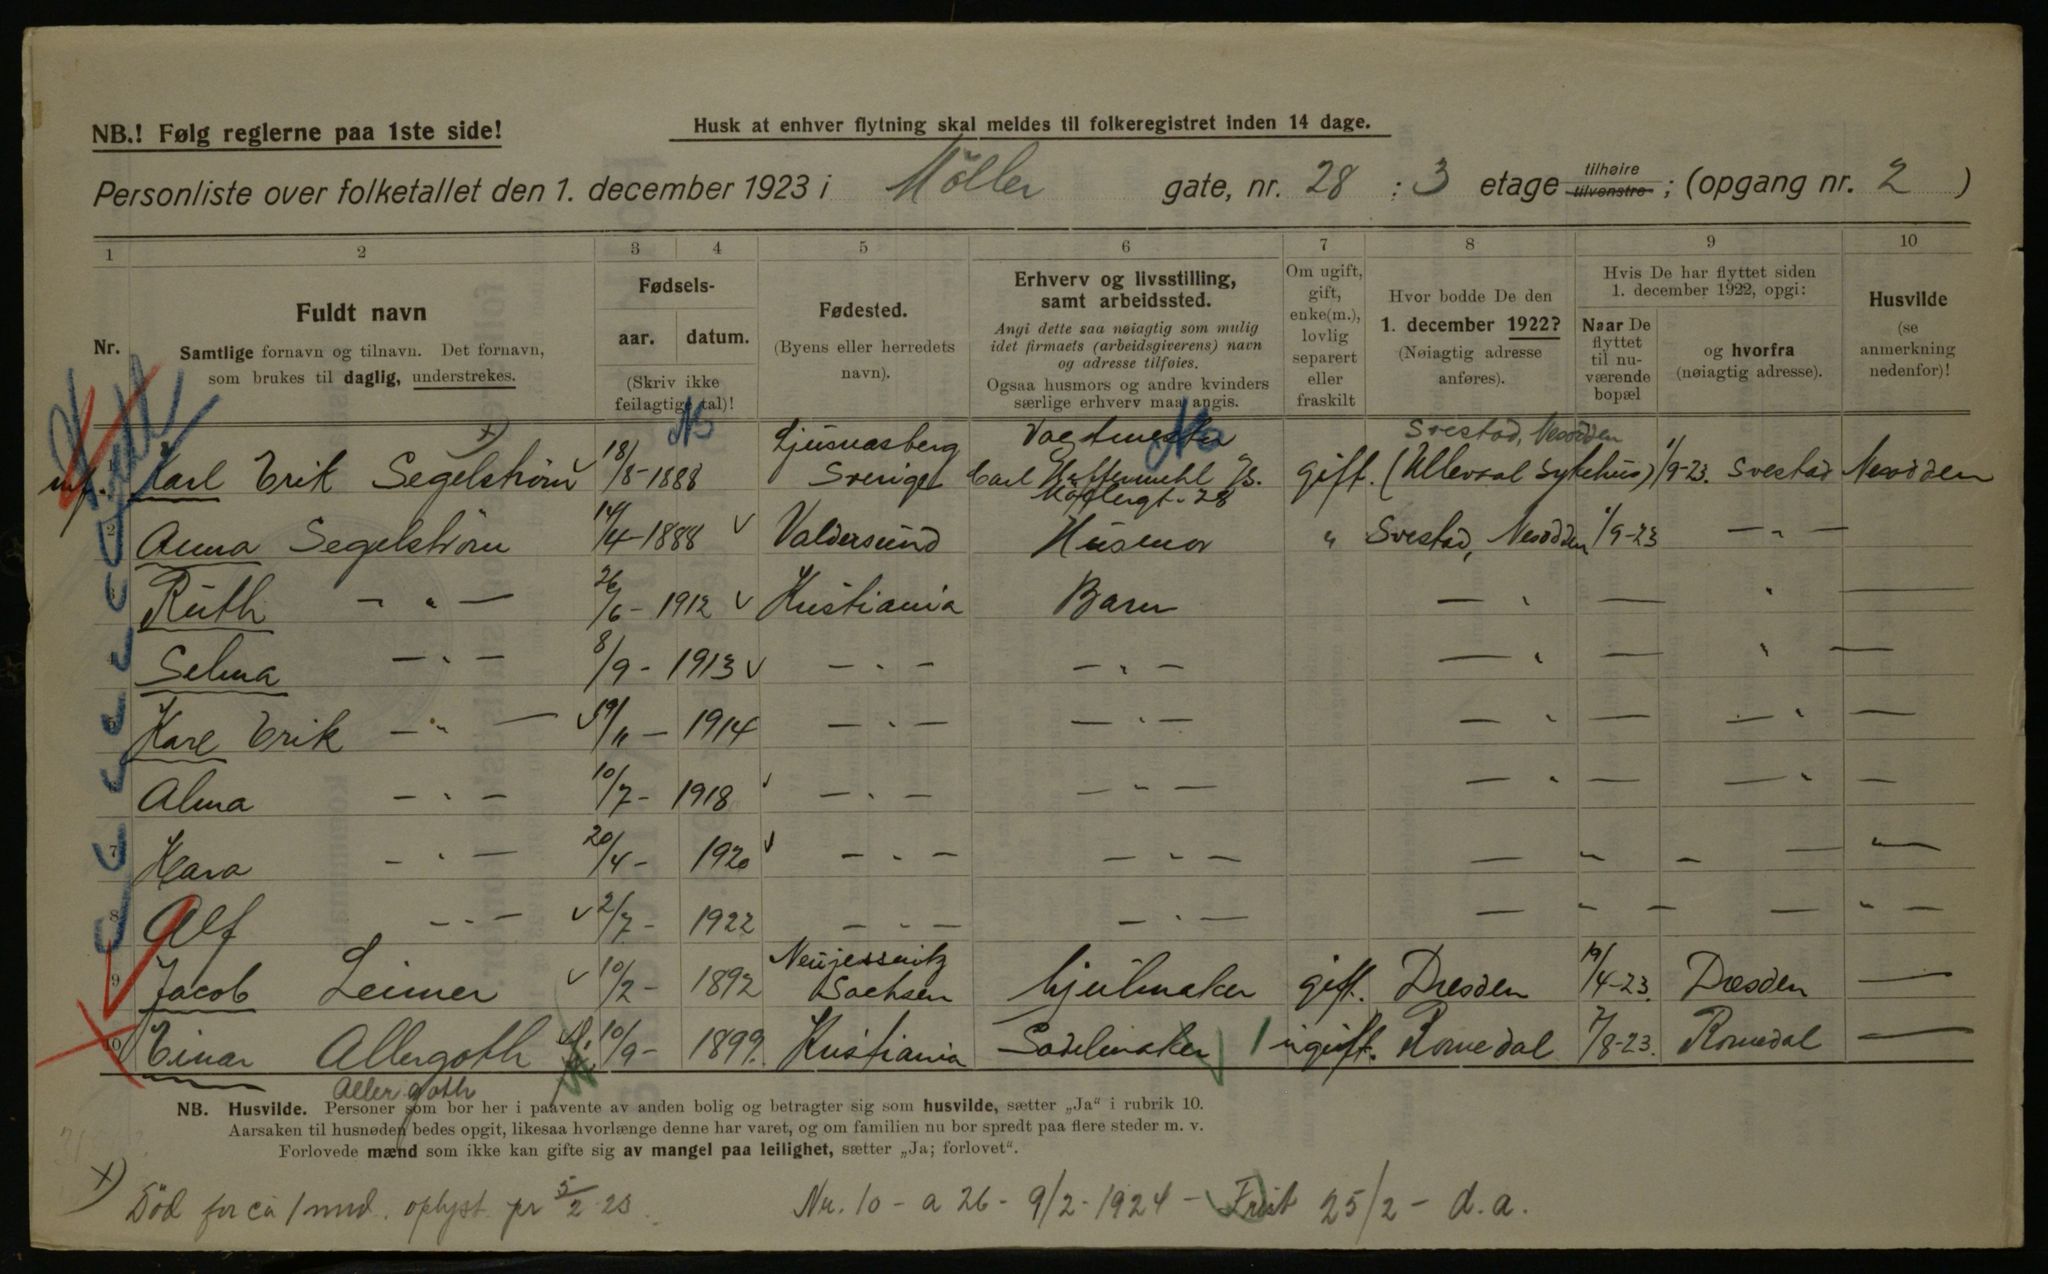 NB.! Følg reglerne paa 1ste side!
Husk at enhver flytning skal meldes til folkeregistret inden 14 dage.
Personliste over folketallet den 1. december 1923 i Möller gate, nr. 28 : 3 etage tilhøire tilvenstre ; (opgang nr. 2 )
1 2 3 4 5 6 7 8 9 10
Nr.
Fuldt navn
Samtlige fornavn og tilnavn. Det fornavn,
som brukes til daglig, understrekes.
Fødsels-
aar. datum.
(Skriv ikke
feilagtige tal)!
Fødested.
(Byens eller herredets
navn).
Erhverv og livsstilling,
samt arbeidssted.
Angi dette saa nøiagtig som mulig
idet firmaets (arbeidsgiverens) navn
og adresse tilføies.
Ogsaa husmors og andre kvinders
særlige erhverv maa angis.
Om ugift,
gift,
enke(m.),
lovlig
separert
eller
fraskilt
Hvor bodde De den
1. december 1922?
(Nøiagtig adresse
anføres).
Hvis De har flyttet siden
1. december 1922, opgi:
Naar De
flyttet
til nu-
værende
bopæl
og hvorfra
(nøiagtig adresse).
Husvilde
(se
anmerkning
nedenfor)!
1 Karl Erik Segelström x) 18/5-1888 Ljusnasberg Sverige Vagtmester Carl Møllergt. 28 gift. Svestad, Nesodden (Ullevaal Sykehus) 1/9-23. Svestad Nesodden
2 Anna Segelström 14/4-1888 Valdersund Husmor " Svestad, Nesodden 1/9-23 — " —
3 Ruth — " — 26/6-1912 Kristiania Barn — " — " —
4 Selma — " — 8/9-1913 — " — — " — — " — " —
5 Karl Erik — " — 19/11-1914 — " — — " — — " — — " —
6 Alma — " — 10/7-1918 — " — — " — — " — — " —
7 Klara — " — 20/4-1920 — " — — " — — " — — " —
8 Alf — " — 2/7-1922 — " — — " — — " — — " —
9 Jacob Leimer 10/2-1892 Sachsen hjulmaker gift. Dresden 19/4-23. Dresden —
10 Einar Allergoth 10/9-1899. Kristiania Sadelmaker ugift. Romedal 7/8-23. Romedal —
Allergoth
NB. Husvilde. Personer som bor her i paavente av anden bolig og betragter sig som husvilde, sætter „Ja“ i rubrik 10.
Aarsaken til husnøden bedes opgit, likesaa hvorlænge denne har varet, og om familien nu bor spredt paa flere steder m. v.
Forlovede mænd som ikke kan gifte sig av mangel paa leilighet, sætter „Ja; forlovet“.
x) Död for ca 1 mnd. oplyst pr 5/2-23.
Nr. 10 - a 26 - 9/2-1924 - Frist 25/2 - d.a.